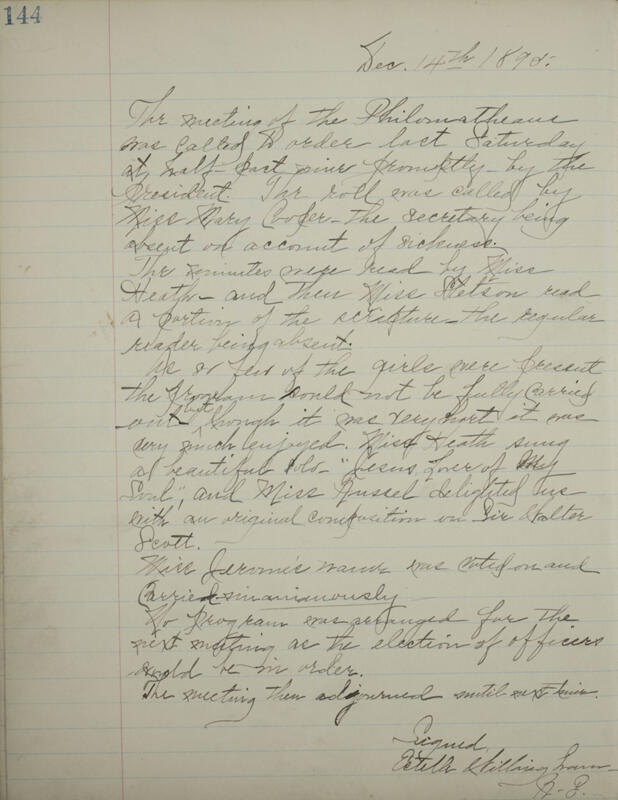 144
Dec. 14th 189
The meeting of the Philomatheans
was called to order last Saturday
at half-past nine promptly-by the
President. The roll was called by
Miss Mary Cooper-the secretary being
absent on account of sickness.
The minutes were read by Miss
Heath-and then Miss Stetson read
a portion of the scripture-the regular
reader being absent.
As so few of the girls were present
the program could not be fully carried
out but though it was very short it was
very much enjoyed. Miss Heath sung
a beautiful solo-"Jesus, Lover of My
Soul", and Miss Russel delighted us
with an original composition on Sir Walter
Scott.
Miss Jerome's name was voted on and
Carried unanimously
No Program was arranged for the
next meeting as the election of officers
would be in order.
The meeting then adjourned until next time.
Signed,
Estelle Willingham